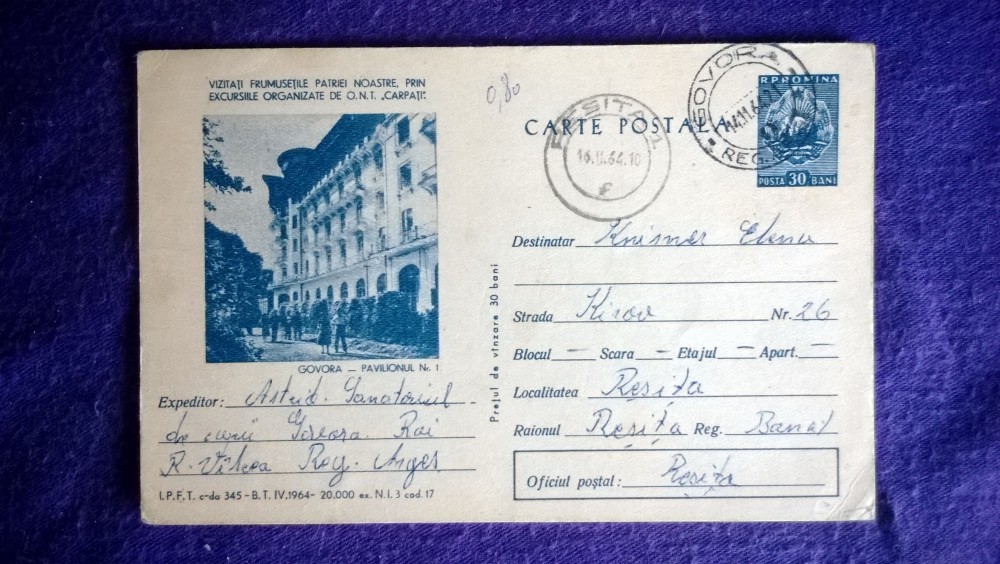 VIZITAȚI FRUMUSEȚILE PATRIEI NOASTRE, PRIN
EXCURSIILE ORGANIZATE DE O.N.T. „CARPAȚI".
GOVORA — PAVILIONUL Nr. 1
Expeditor: Astrid. Sanatoriul
de copii Govora. Rai
R. Vîlcea Reg. Argeș
I.P.F.T. c-da 345 - B.T. IV.1964 - 20.000 ex. N.I. 3 cod. 17
Prețul de vînzare 30 bani
0,80
CARTE POSTALA
REȘIȚA 1
16.11.64.10
GOVORA
14.11.64
REG.
R.P.ROMINA
POSTA 30 BANI
Destinatar Knisner Elena
Strada Kirov Nr. 26
Blocul — Scara — Etajul — Apart. —
Localitatea Reșița
Raionul Reșița Reg. Banat
Oficiul poștal: Reșița